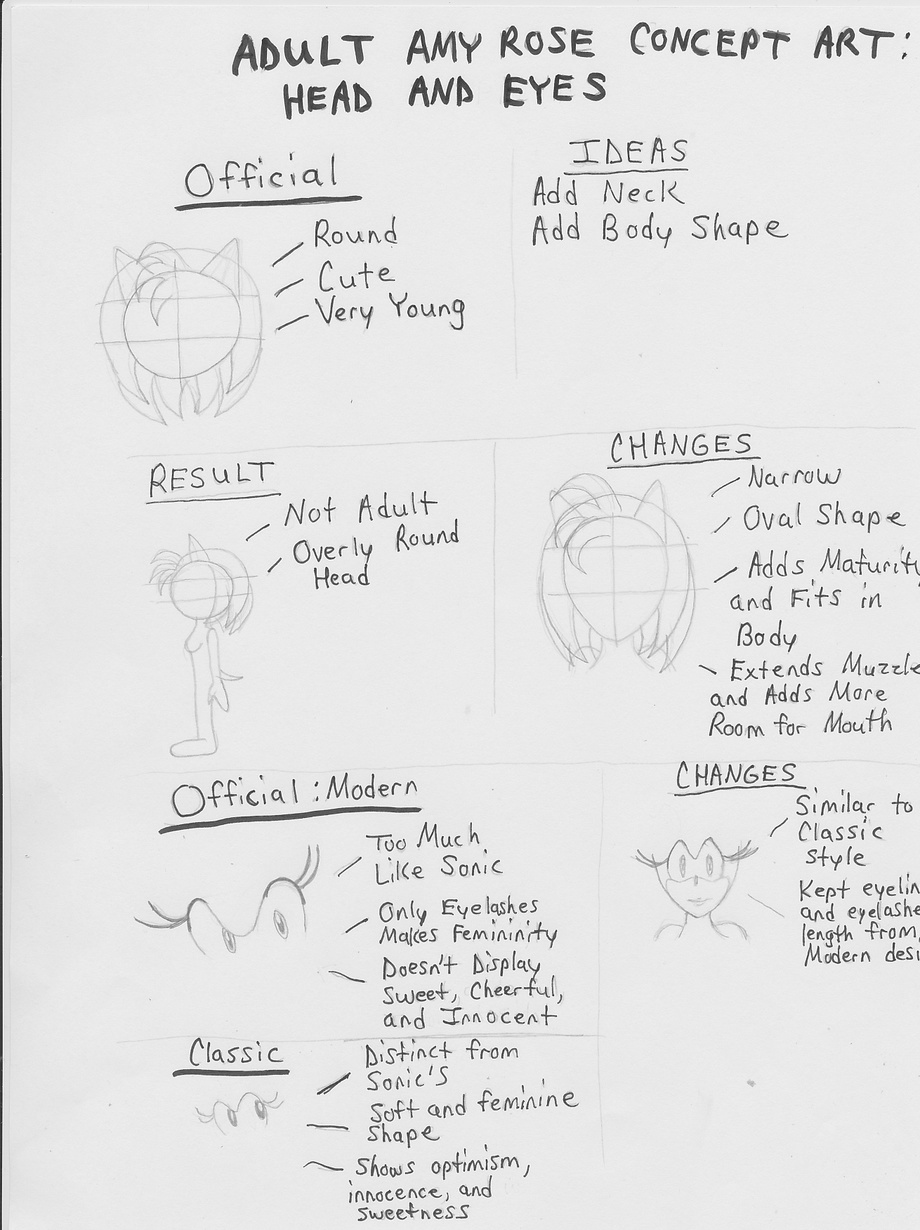 ADULT AMY ROSE CONCEPT ART:
HEAD AND EYES
Official
Round
Cute
Very Young
IDEAS
Add Neck
Add Body Shape
RESULT
Not Adult
Overly Round
Head
CHANGES
Narrow
Oval Shape
Adds Maturity
and Fits in
Body
Extends Muzzle
and Adds More
Room for Mouth
Official: Modern
Too Much
Like Sonic
Only Eyelashes
Makes Femininity
Doesn't Display
Sweet, Cheerful,
and Innocent
CHANGES
Similar to
Classic
Style
Kept eyelin
and eyelashe
length from
Modern desi
Classic
Distinct from
Sonic's
Soft and feminine
Shape
Shows optimism,
innocence, and
sweetness